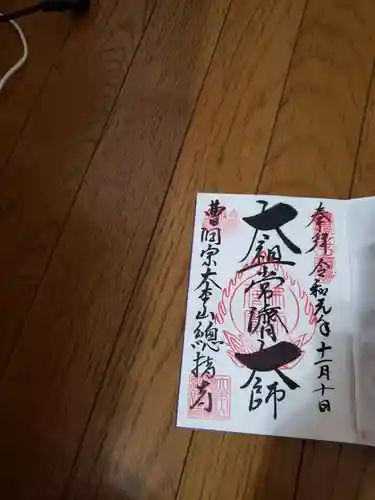 奉拝 令和元年十一月十日
太祖常濟大師
曹洞宗大本山總持寺